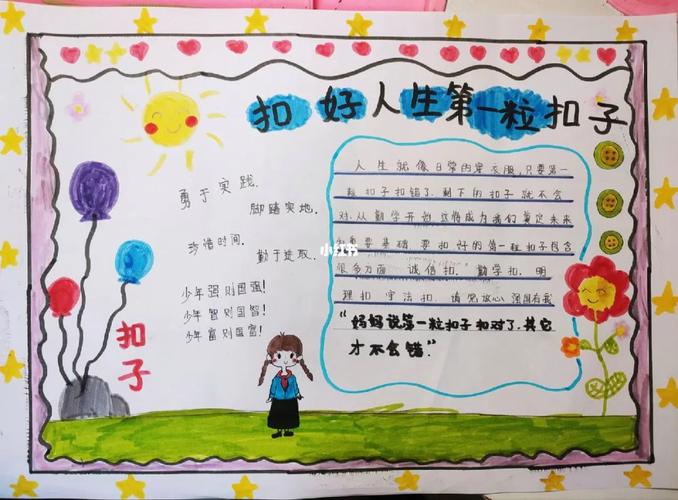 扣好人生第一粒扣子
勇于实践.
脚踏实地.
珍惜时间.
勤于进取.
少年强则国强!
少年智则国智!
少年富则国富!
扣子
人生就像日常的穿衣服,只要第一
粒扣子扣错了,剩下的扣子就不会
对.从勤学开始这将成为我们奠定未来
的重要基础 要扣好的第一粒扣子包含
很多方面 诚信扣." 勤学扣. 明
理扣 守法扣. 请党放心 强国有我
"妈妈说第一粒扣子扣对了.其它
才不会错."
小红书